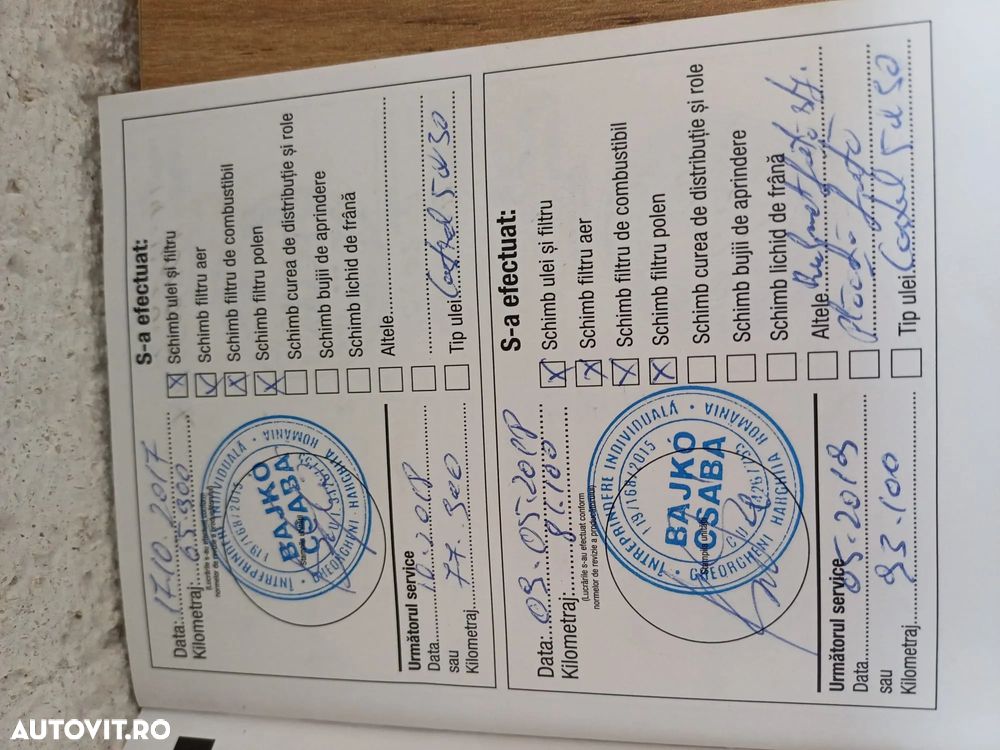 Data: 17.10.2017
Kilometraj: 65.300
(Lucrările s-au efectuat conform
normelor de revizie a producătorului)
ÎNTREPRINDERE INDIVIDUALĂ • ROMÂNIA
19/168/2015
BAJKÓ
CSABA
GHEORGHENI HARGHITA
Următorul service
Data 10.2018
sau
Kilometraj 77.300
S-a efectuat:
Schimb ulei și filtru
Schimb filtru aer
Schimb filtru de combustibil
Schimb filtru polen
Schimb curea de distribuție și role
Schimb bujii de aprindere
Schimb lichid de frână
Altele
Tip ulei Castrol 5W30
Data: 09.05.2018
Kilometraj: 81.100
(Lucrările s-au efectuat conform
normelor de revizie a producătorului)
ÎNTREPRINDERE INDIVIDUALĂ • ROMÂNIA
19/168/2015
BAJKÓ
CSABA
Ștampila unității
GHEORGHENI HARGHITA
Următorul service
Data 05.2019
sau
Kilometraj 93.100
S-a efectuat:
Schimb ulei și filtru
Schimb filtru aer
Schimb filtru de combustibil
Schimb filtru polen
Schimb curea de distribuție și role
Schimb bujii de aprindere
Schimb lichid de frână
Altele
față
Tip ulei Castrol 5W30
AUTOVIT.RO